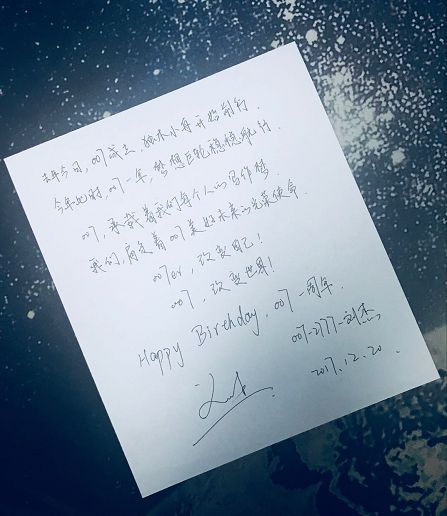 去年今日，007成立，独木小舟开始前行．
今年此时，007一年，梦想巨轮稳稳航行．
007，承载着我们每个人的写作梦．
我们，肩负着007美好未来的光荣使命．
007er，改变自己！
007，改变世界！
Happy Birthday，007一周年．
007-2777-刘杰
2017.12.20．